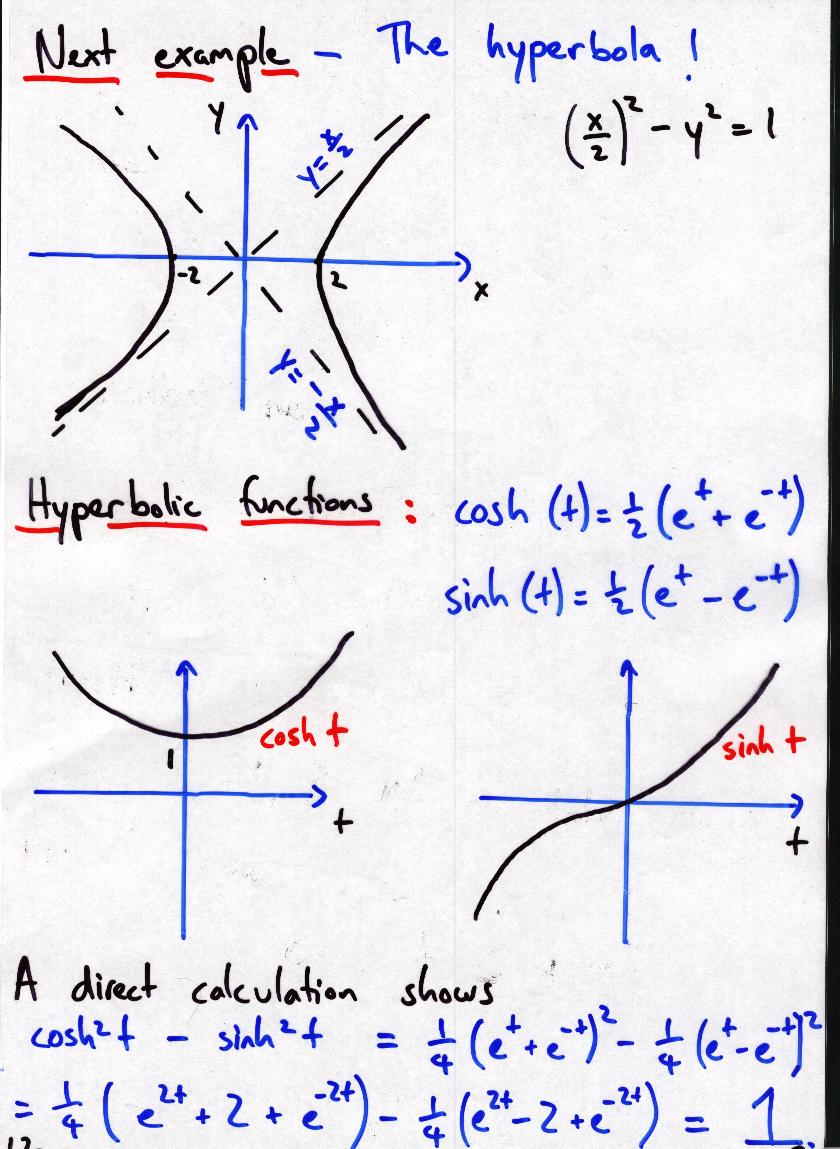 Next example – The hyperbola !
(x/2)² - y² = 1
y
y = x/2
-2
2
x
y = -x/2
Hyperbolic functions : cosh (t) = 1/2 (e^t + e^-t)
sinh (t) = 1/2 (e^t - e^-t)
cosh t
1
t
sinh t
t
A direct calculation shows
cosh² t - sinh² t = 1/4 (e^t + e^-t)² - 1/4 (e^t - e^-t)²
= 1/4 (e^2t + 2 + e^-2t) - 1/4 (e^2t - 2 + e^-2t) = 1